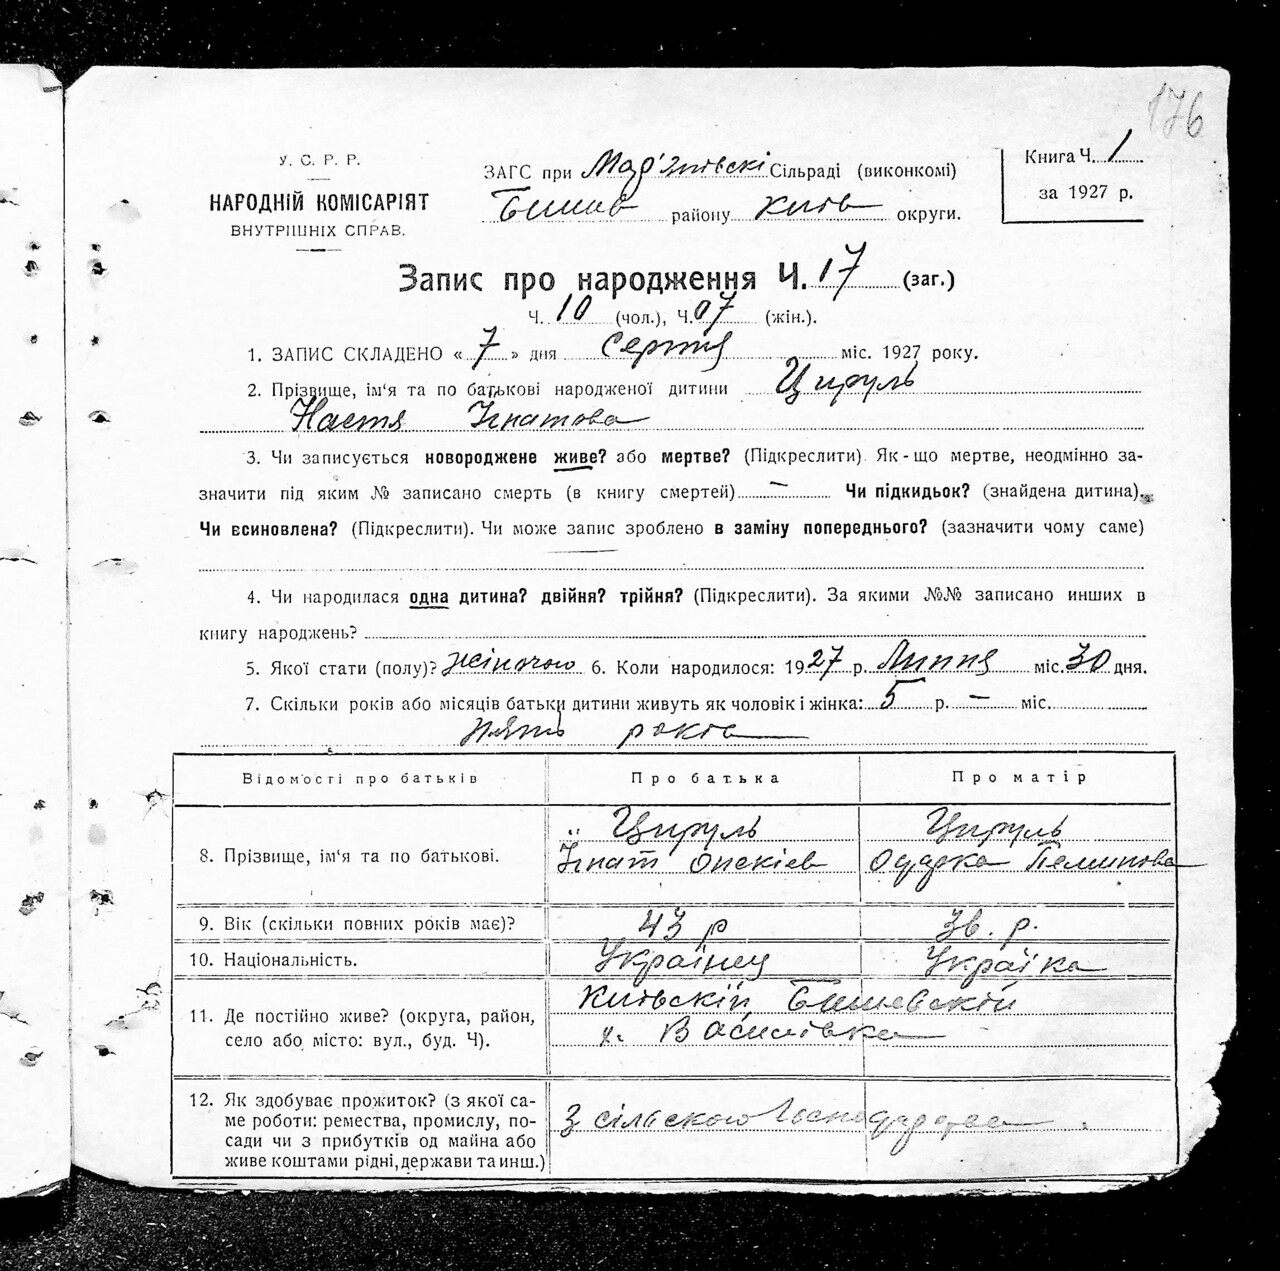 176
У. С. Р. Р.
НАРОДНІЙ КОМІСАРІЯТ
ВНУТРІШНІХ СПРАВ.
ЗАГС при Мар'янівскі Сільраді (виконкомі)
Бишів району Київ округи.
Книга Ч. 1
за 1927 р.
Запис про народження Ч. 17 (заг.)
Ч. 10 (чол.), Ч. 07 (жін.).
1. ЗАПИС СКЛАДЕНО « 7 » дня Серпня міс. 1927 року.
2. Прізвище, ім'я та по батькові народженої дитини Цируль
Настя Ігнатова
3. Чи записується новороджене живе? або мертве? (Підкреслити). Як-що мертве, неодмінно за-
значити під яким № записано смерть (в книгу смертей) — Чи підкидьок? (знайдена дитина).
Чи всиновлена? (Підкреслити). Чи може запис зроблено в заміну попереднього? (зазначити чому саме)
4. Чи народилася одна дитина? двійня? трійня? (Підкреслити). За якими №№ записано инших в
книгу народжень?
5. Якої стати (полу)? жіночою 6. Коли народилося: 1927 р. Липня міс. 30 дня.
7. Скільки років або місяців батьки дитини живуть як чоловік і жінка: 5 р. — міс.
пять років
Відомості про батьків Про батька Про матір
8. Прізвище, ім'я та по батькові.
Цируль Цируль
Ігнат Одарка
9. Вік (скільки повних років має)? 43 р 36. р.
10. Національність. Українец Украіка
11. Де постійно живе? (округа, район,
село або місто: вул., буд. Ч).
Київскій Бишевскій
х. Василівка
12. Як здобуває прожиток? (з якої са-
ме роботи: ремества, промислу, по-
сади чи з прибутків од майна або
живе коштами рідні, держави та инш.)
З сільского Господарства